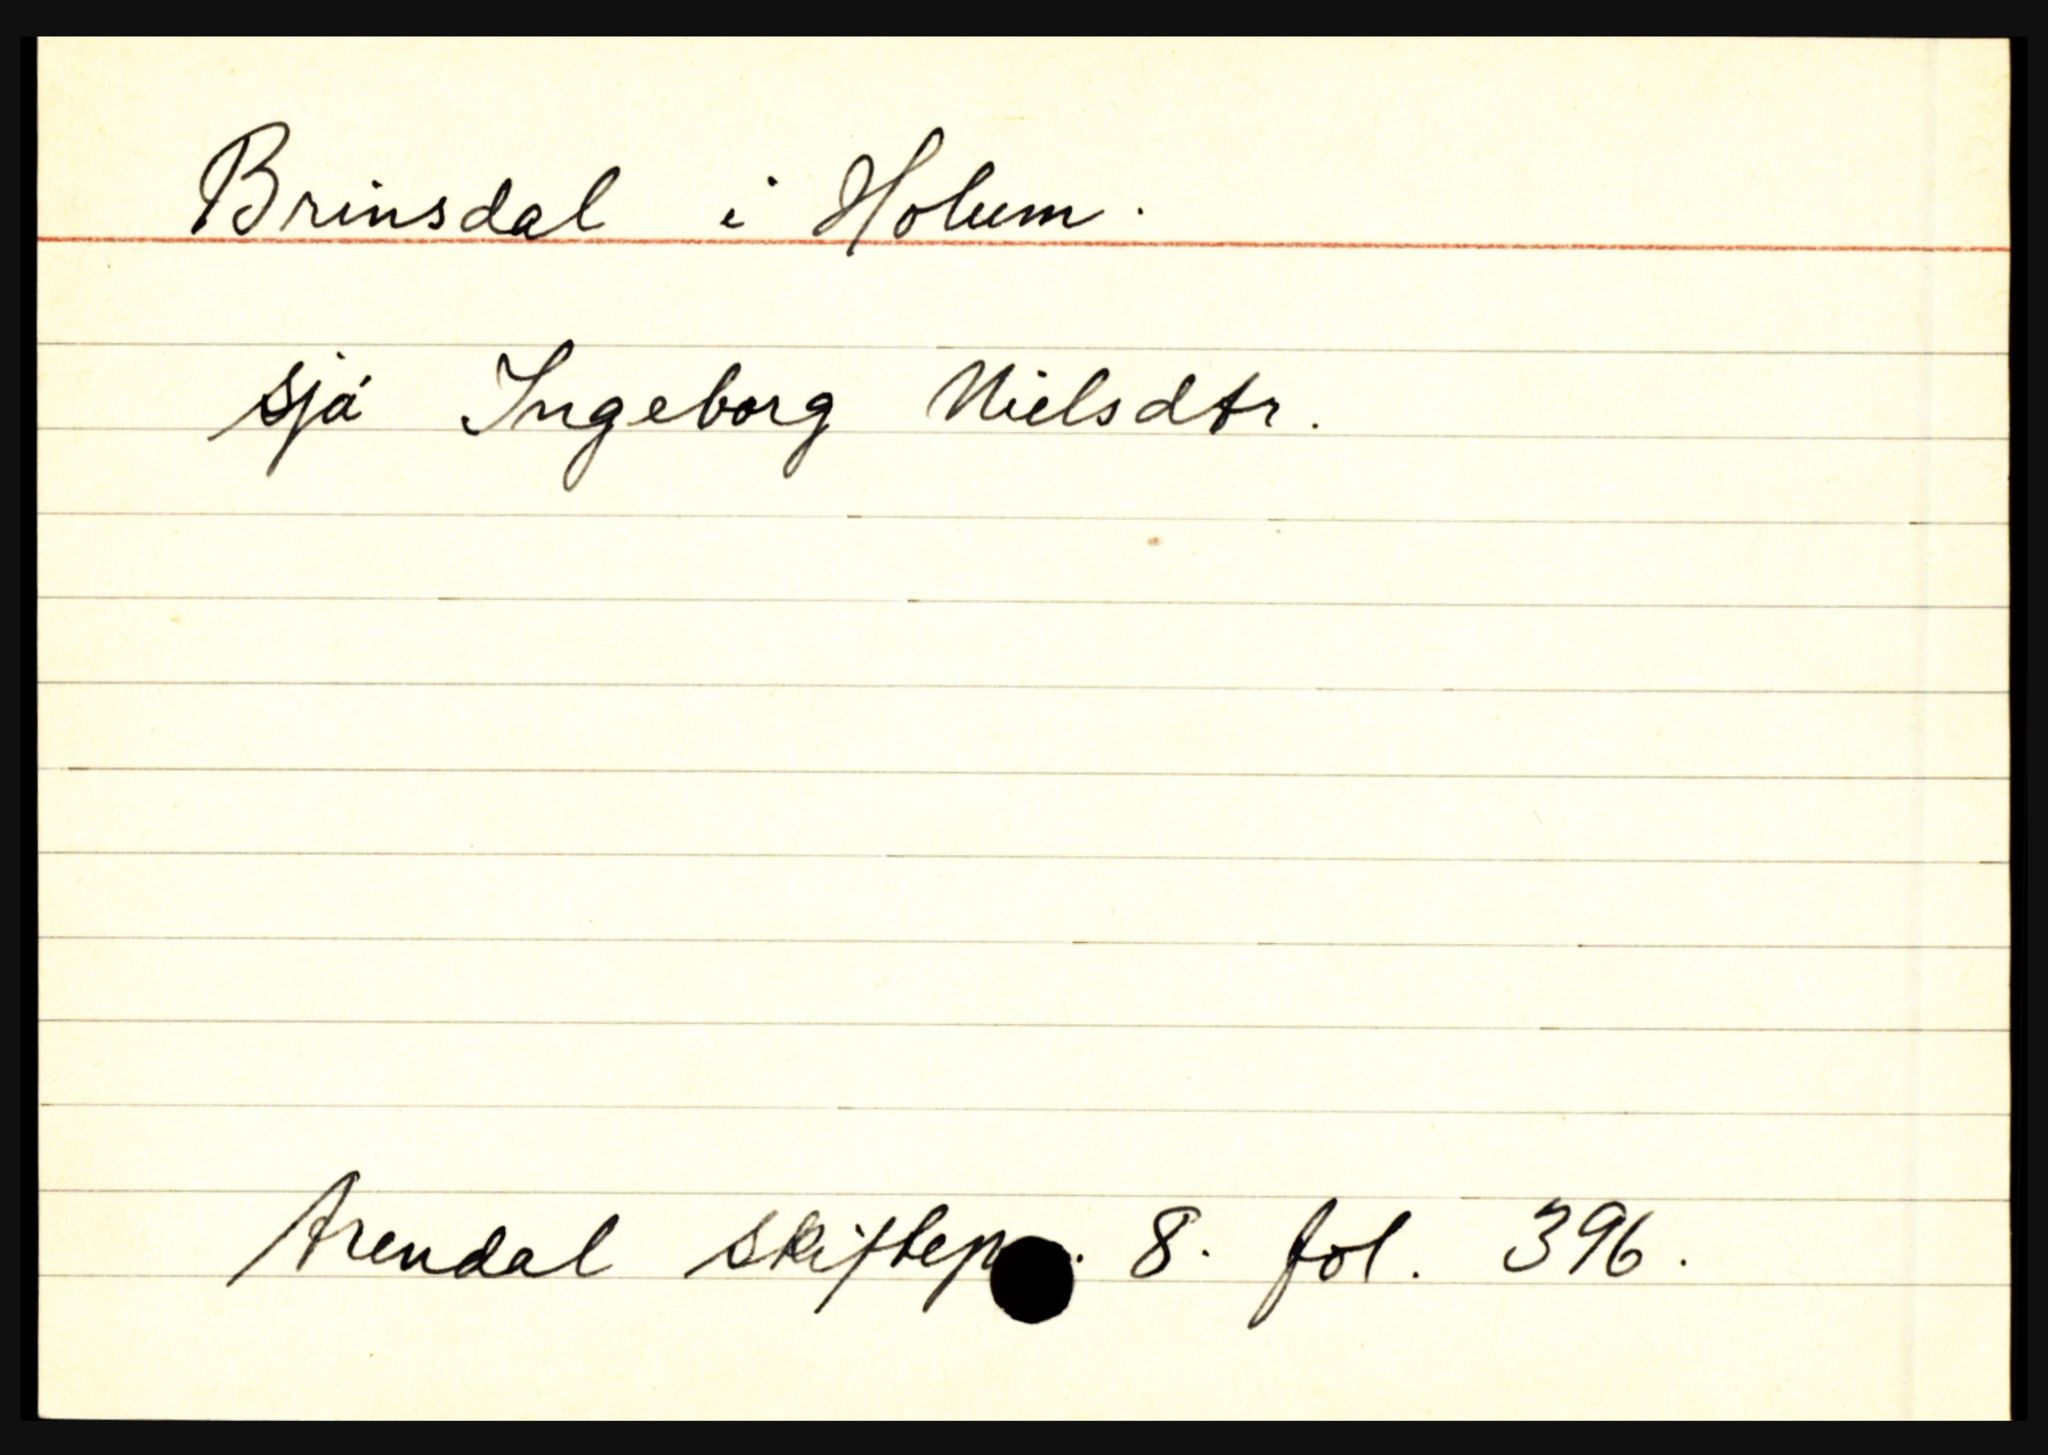 Brinsdal i Holum.
sjå Ingeborg Nielsdtr.
Arendal 8. fol. 396.